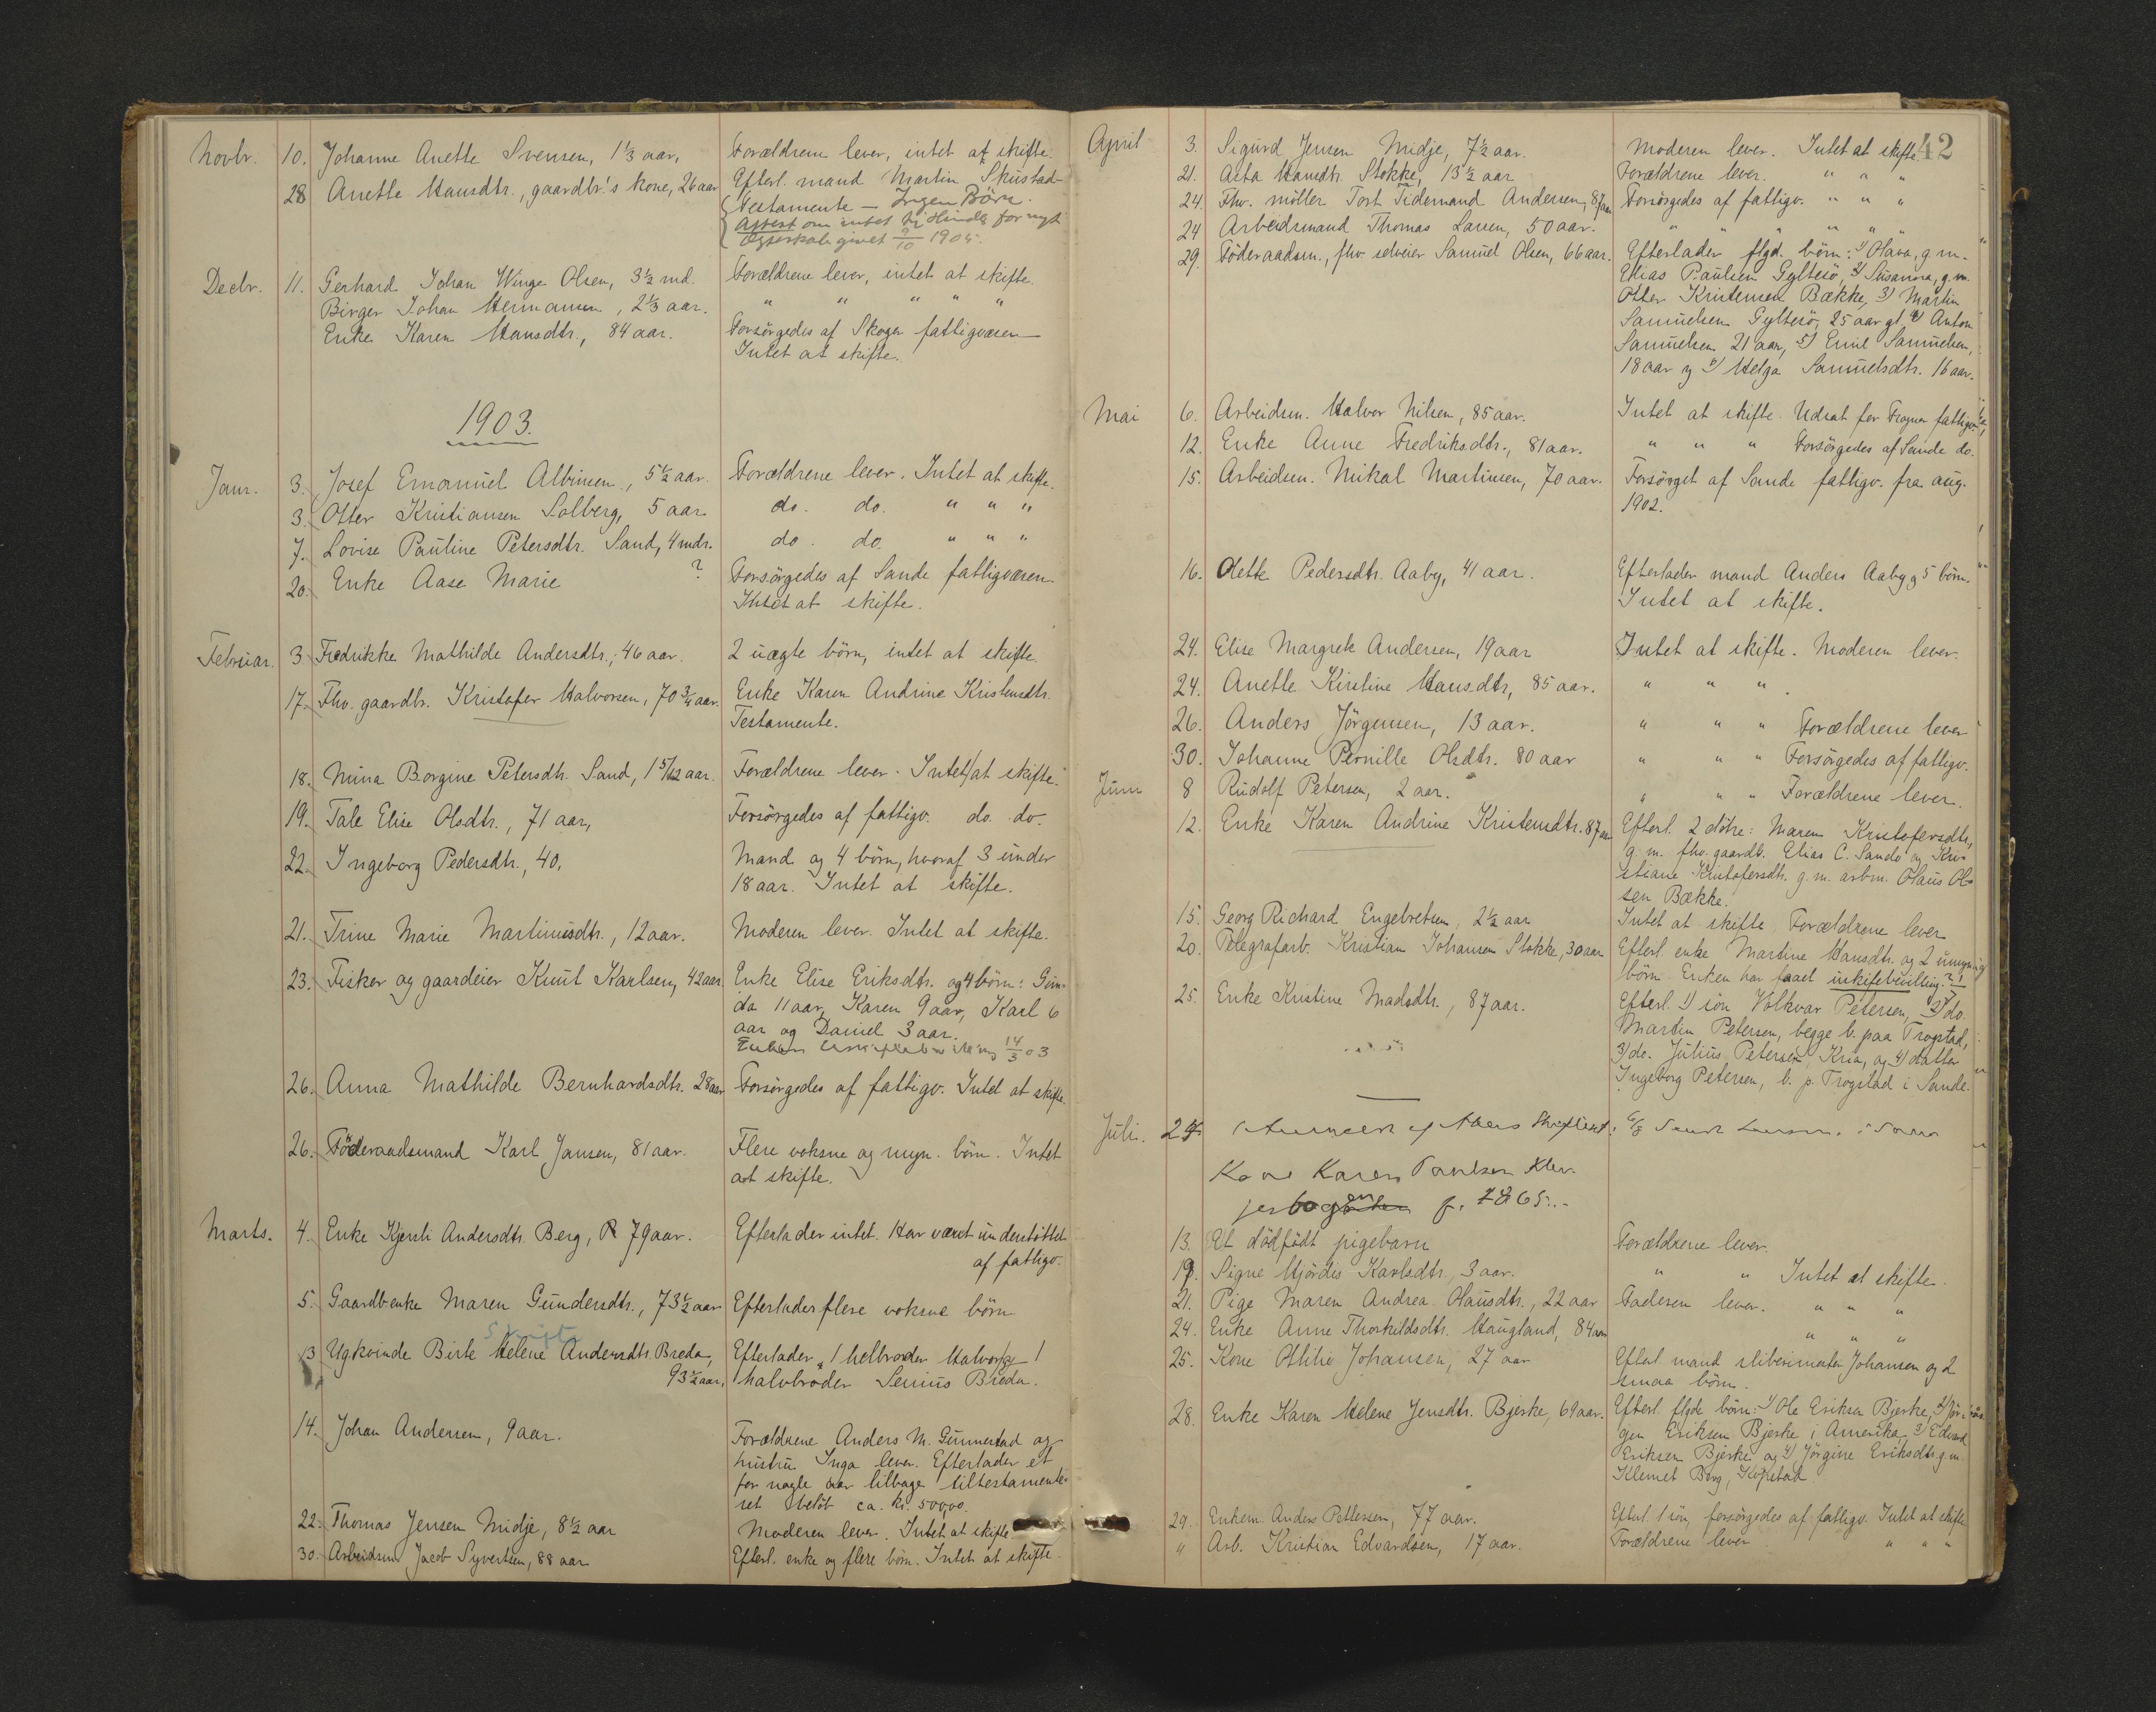 Novbr. 10. Johanne Anette Svensen, 1 1/3 aar, Forældrene lever, intet at skifte.
28 Anette Hansdtr., gaardbr.'s kone, 26 aar Efterl. mand Martin Skustad
Testamente – Ingen Börn.
Attest om intet til Hinder for nyt
Ægteskab givet 9/10 1905.
Decbr. 11. Gerhard Johan Winge Olsen, 3 1/2 md. Forældrene lever, intet at skifte.
Birger Johan Hermansen, 2 1/3 aar. " " " " "
Enke Karen Hansdtr., 84 aar. Forsörgedes af Skoger fattigvæsen
Intet at skifte.
1903.
Janr. 3. Josef Emanuel Albinsen, 5 1/2 aar. Forældrene lever. Intet at skifte.
3. Otter Kristiansen Solberg, 5 aar do. do. " " "
7. Lovise Pauline Petersdtr. Sand, 4 mdr. do. do. " " "
20. Enke Aase Marie ? Forsörgedes af Sande fattigvæsen
Intet at skifte.
Februar. 3. Fredrikke Mathilde Andersdtr., 46 aar. 2 uægte börn, intet at skifte.
17. Fhv. gaardbr. Kristofer Halvorsen, 70 3/4 aar. Enke Karen Andrine Kristensdtr.
Testamente.
18. Mina Borgine Petersdtr. Sand, 1 5/12 aar. Forældrene lever. Intet at skifte.
19. Tale Elise Olsdtr., 71 aar, Forsörgedes af fattigv. do. do.
22. Ingeborg Pedersdtr., 40, Mand og 4 börn, hvoraf 3 under
18 aar. Intet at skifte.
21. Trine Marie Martinusdtr., 12 aar. Moderen lever. Intet at skifte.
23. Fisker og gaardeier Knut Karlsen, 42 aar. Enke Elise Eriksdtr. og 4 börn: Gun-
da 11 aar, Karen 9 aar, Karl 6
aar og Daniel 3 aar.
Enken 14/3 03
26. Anna Mathilde Bernhardsdtr. 28 aar Forsörgedes af fattigv. Intet at skifte.
26. Föderaadsmand Karl Jansen, 81 aar. Flere voksne og myn. börn. Intet
at skifte.
Marts. 4. Enke Kjersti Andersdtr. Berg, 79 aar. Efterlader intet. Har været understöttet
af fattigv.
5. Gaardbenke Maren Gundersdtr., 73 1/2 aar Efterlader flere voksne börn
Skifte
13 Ugkvinde Birte Helene Andersdtr. Breda, Efterlader 1 helbroder Halvor og 1
93 1/2 aar, halvbroder Senius Breda.
14. Johan Andersen, 9 aar. Forældrene Anders M. Gunnestad og
hustru Inga lever. Efterlader et
for nogle aar tilbage tiltestamente-
ret belöb ca. kr. 500,00.
22. Thomas Jensen Midje, 8 1/2 aar Moderen lever. Intet at skifte
30. Arbeidsm. Jacob Syvertsen, 88 aar Efterl. enke og flere börn. Intet at skifte.
42
April 3. Sigurd Jensen Midje, 7 1/2 aar. Moderen lever. Intet at skifte.
21. Asta Hansdtr. Stokke, 13 1/2 aar Forældrene lever. " " "
24. Fhv. möller Tost Tidemand Andersen, 87 aar Forsörgedes af fattigv. " " "
24 Arbeidsmand Thomas Larsen, 50 aar. " " " " "
29. Föderaadsm., fhv selveier Samuel Olsen, 66 aar. Efterlader flgd. börn: 1) Olava, g. m.
Elias Paulsen Gyltesö, 2) Susanna, g. m.
Otter Kristensen Bække, 3) Martin
Samuelsen Gyltesö, 25 aar gl. 4) Anton
Samuelsen 21 aar, 5) Emil Samuelsen,
18 aar og 6) Helga Samuelsdtr. 16 aar.
Mai 6. Arbeidsm. Halvor Nilsen, 85 aar. Intet at skifte. Udsat for Fragner fattigv.
12. Enke Anne Fredriksdtr., 81 aar. " " " Forsörgedes af Sande do.
15. Arbeidsm. Nikal Martinsen, 70 aar. Forsörget af Sande fattigv. fra aug.
1902.
16. Olette Pedersdtr. Aaby, 41 aar. Efterlader mand Anders Aaby og 5 börn.
Intet at skifte.
24. Elise Margrete Andersen, 19 aar Intet at skifte. Moderen lever.
24. Anette Kirstine Hansdtr, 85 aar. " " ".
26. Anders Jörgensen, 13 aar. " " " Forældrene lever
30. Johanne Pernille Olsdtr. 80 aar " " " Forsörgedes af fattigv.
Juni 8 Rudolf Petersen, 2 aar. " " " Forældrene lever.
12. Enke Karen Andrine Kristensdtr. 87 aar Efterl. 2 dötre: Maren Kristofersdtr,
g. m. fhv. gaardb. Elias C. Sando og Kri-
stiane Kristofersdtr. g. m. arbm. Olaus Ol-
sen Bække.
15. Georg Richard Engebretsen, 2 1/2 aar Intet at skifte. Forældrene lever
20. Telegrafarb. Kristian Johansen Stokke, 30 aar Efterl. enke Martine Hansdtr. og 2 umyndig
börn. Enken har faaet uskiftebevilling?!
25. Enke Kristine Madsdtr., 87 aar. Efterl. 1) sön Volkvar Petersen, 2) do.
Martin Petersen, begge b. paa Trogstad,
3) do. Julius Petersen, Kria, og 4) datter
Ingeborg Petersen, b. p. Trogstad i Sande.
Juli. 24 6/8
Kone Karen Paulsen Klev.
f. 1865.
13. Et dödfödt pigebarn Forældrene lever.
19. Signe Hjördis Karlsdtr., 3 aar. " " Intet at skifte.
21. Pige Maren Andrea Hansdtr., 22 aar Faderen lever. " " "
24. Enke Anne Thorkildsdtr. Haugland, 84 aar " " "
25. Kone Ottilie Johansen, 27 aar Efterl. mand slibermester Johansen og 2
smaa börn.
28. Enke Karen Helene Jensdtr. Bjerke, 69 aar. Efterl. flgde börn: 1) Ole Eriksen Bjerke, 2) Jör-
gen Eriksen Bjerke i Amerika, 3) Edvard
Eriksen Bjerke og 4) Jörgine Eriksdtr. g. m.
Klemet Berg,
29. Enkem. Anders Pettersen, 77 aar. Efterl. 1 sön, forsörgedes af fattigv. Intet at skifte
" Arb. Kristian Edvardsen, 17 aar. Forældrene lever " " "